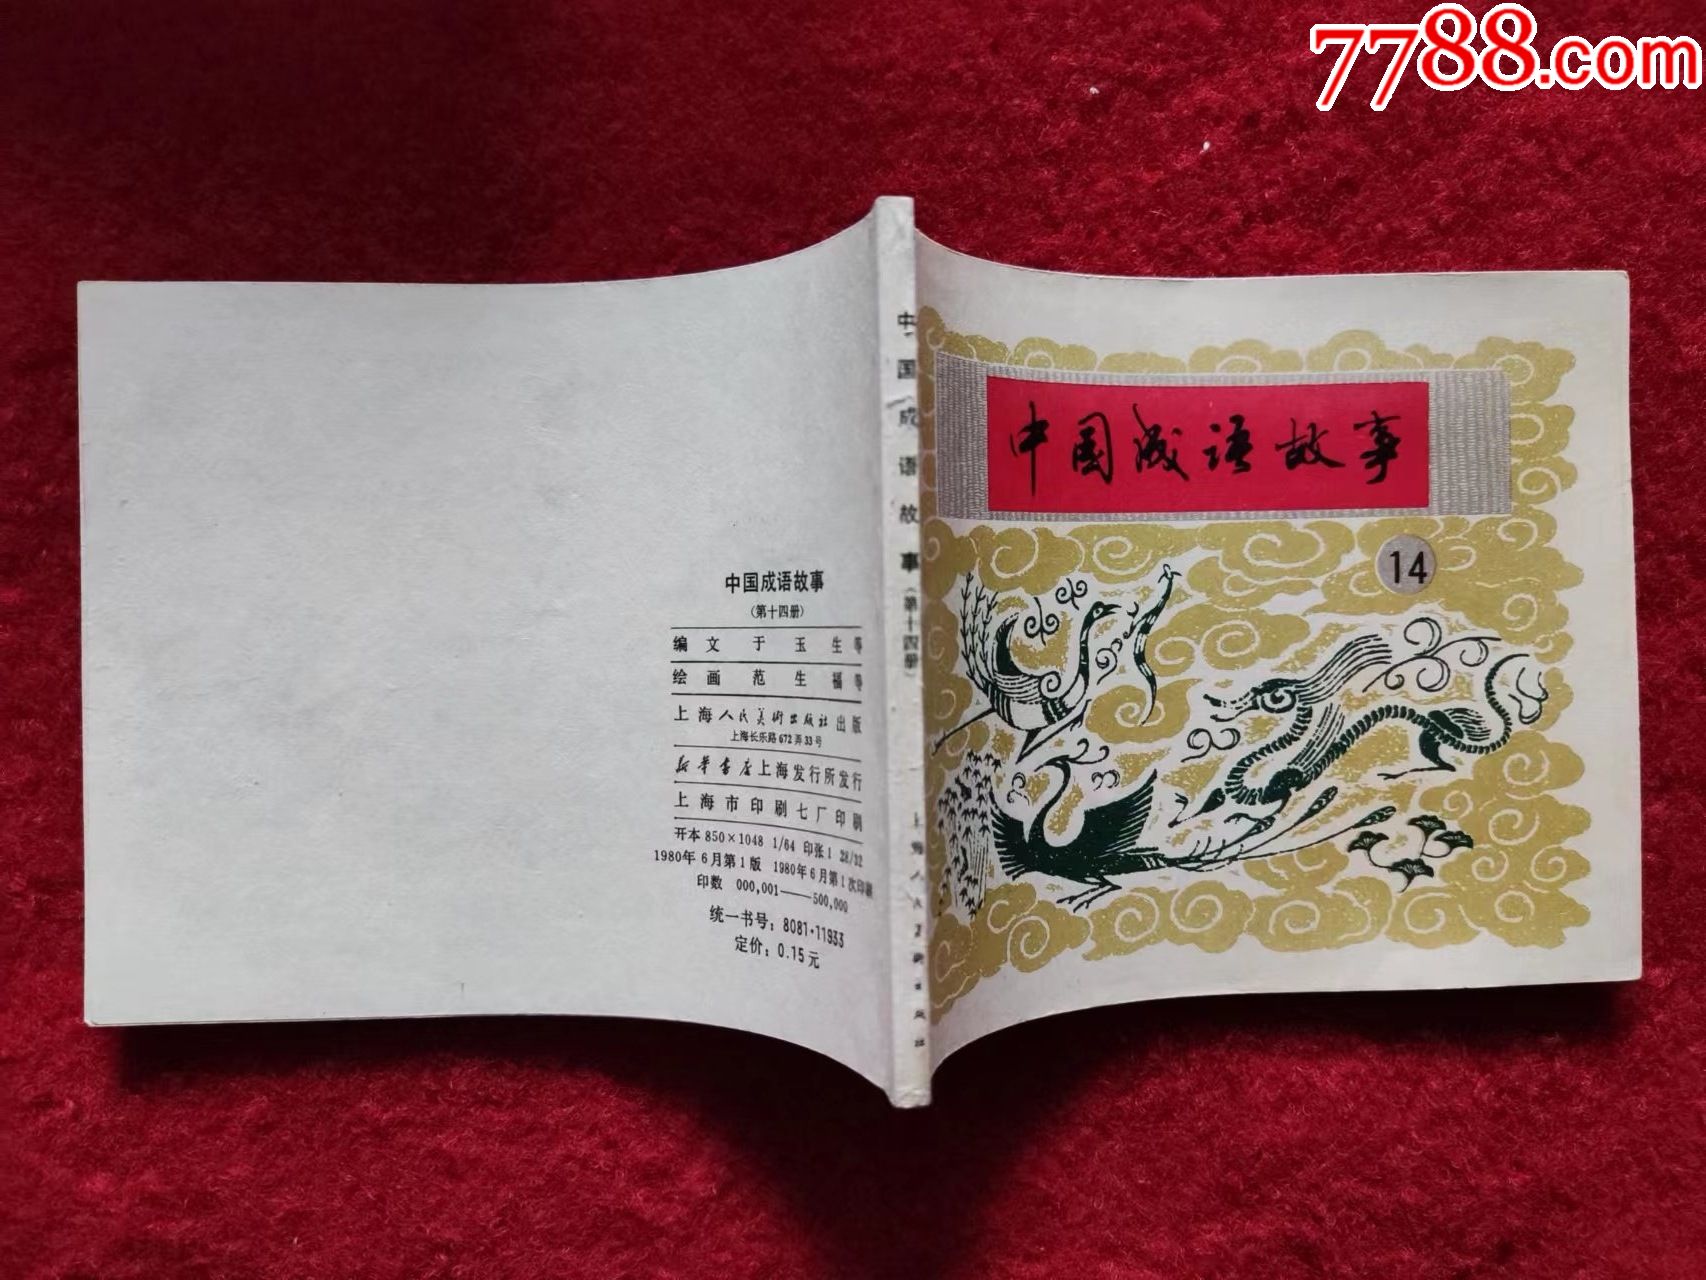 7788.com
中国成语故事
14
中国成语故事(第十四册)
中国成语故事
(第十四册)
编文 于玉生等
绘画 范生福等
上海人民美術出版社出版
上海长乐路672弄33号
新华书店上海发行所发行
上海市印刷七厂印刷
开本 850×1048 1/64 印张1 28/32
1980年6月第1版 1980年6月第1次印刷
印数 000,001——500,000
统一书号：8081·11933
定价：0.15元